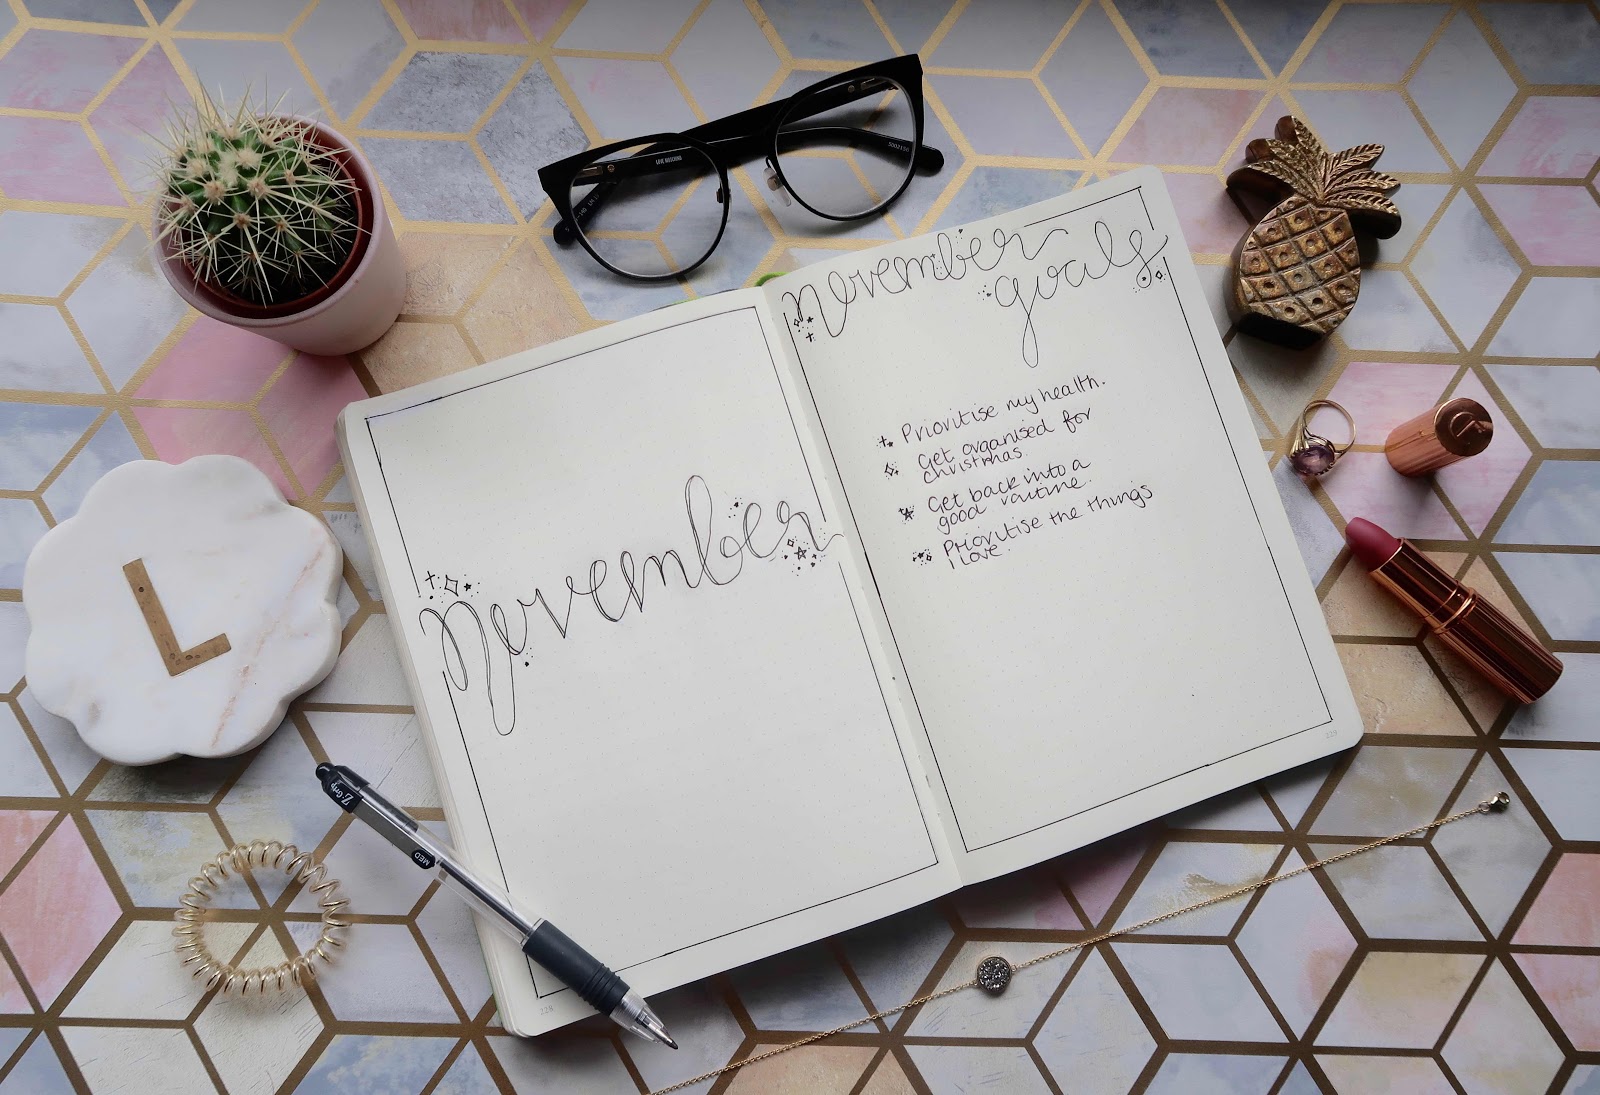 LOVE MOSCHINO
november
november
goals
Prioritise my health.
Get organised for
christmas.
Get back into a
good routine.
Prioritise the things
I love.
L
Z-Grip
MED
228
229